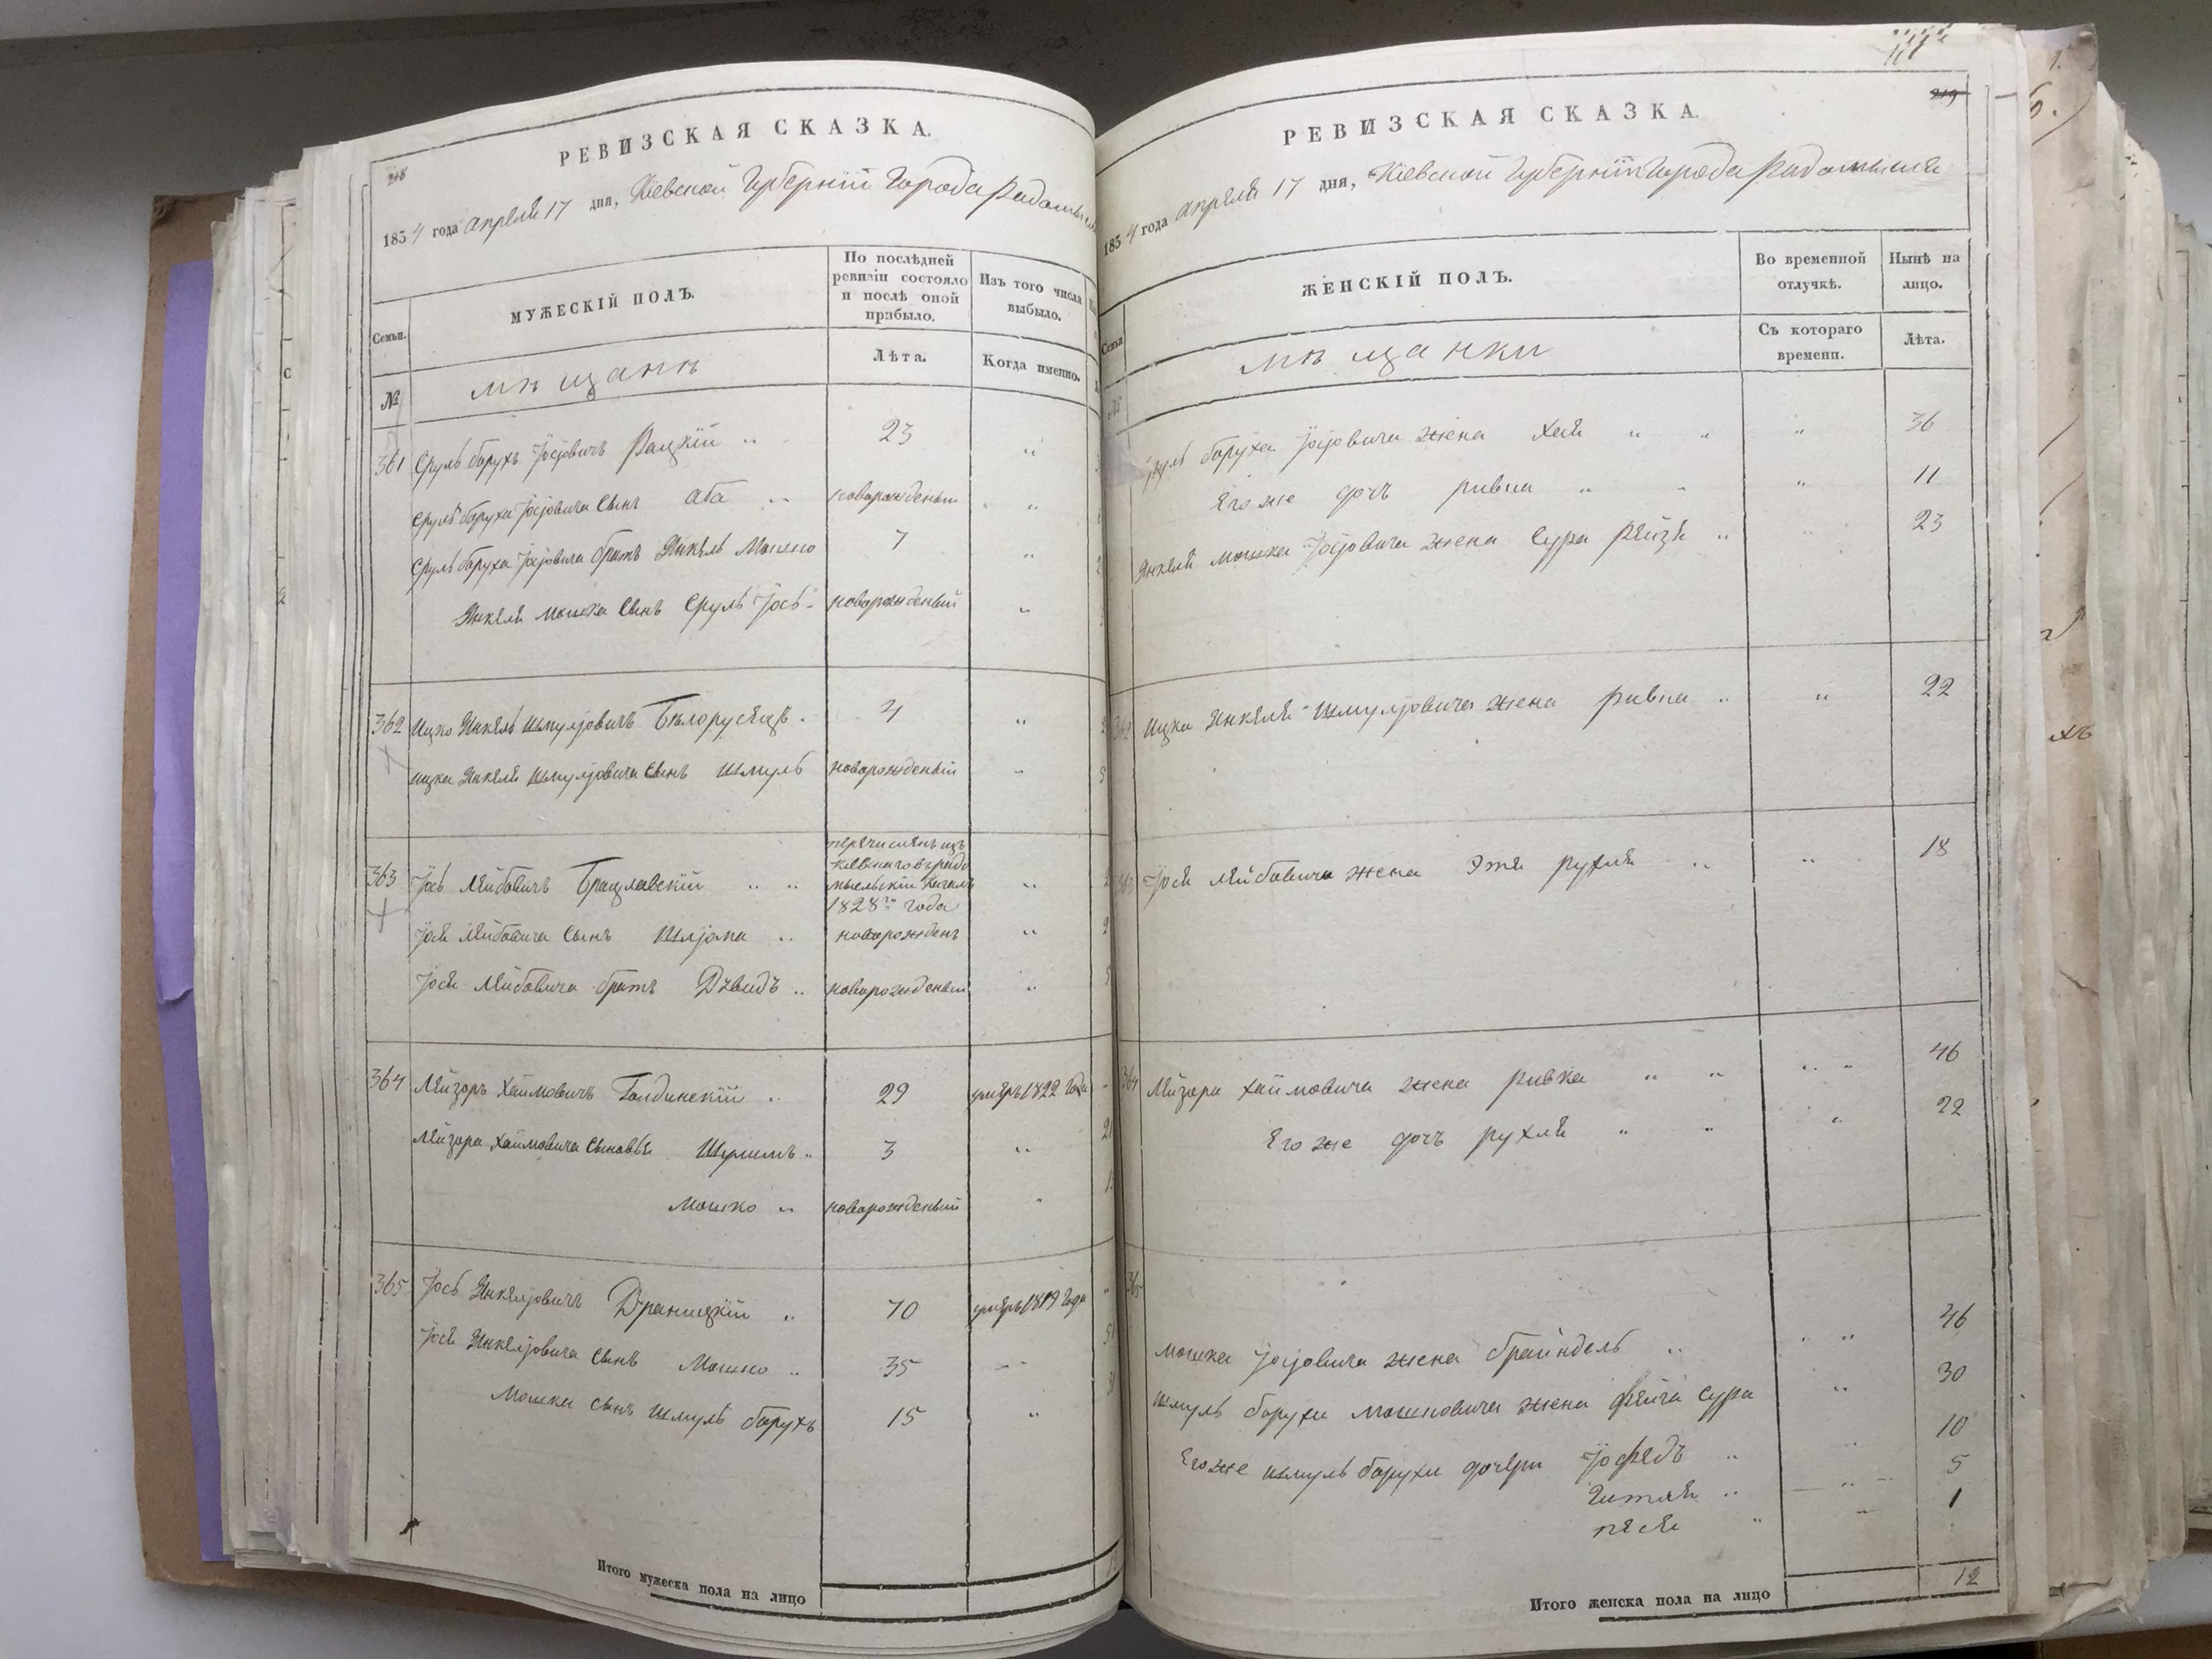 218
РЕВИЗСКАЯ СКАЗКА.
1854 года Апреля 17 дня, Кіевской Губерніи Города Радомысля
Семьи.
МУЖЕСКІЙ ПОЛЪ.
По послѣдней ревизіи состояло и послѣ оной прибыло.
Изъ того числа выбыло.
№
мѣщанѣ
Лѣта.
Когда именно.
361 Сруль Борухъ Іосіовичъ Рацкій 23
Сруль Боруха Іосіовича Сынъ Аба новорожденый
Сруль Боруха Іосіовича братъ Янкель Мошко 7
Янкеля Мошка Сынъ Сруль Іось новорожденый
362 Ицко Янкель Шмуліовичъ Бѣлорусецъ 4
Ицка Янкеля Шмуліовича Сынъ Шмуль новорожденый
363 Іось Лейбовичъ Брацлавскій перечисленъ изъ
Кіевскаго въ радо
мысльскій Кагалъ
1828го года
Іося Лейбовича Сынъ Шліома новорожденъ
Іося Лейбовича братъ Дывидъ новорожденый
364 Лейзоръ Хаимовичъ Голдинскій 29 умеръ 1822 года
Лейзора Хаимовича Сыновья Шулимъ 3
Мошко новорожденый
365 Іось Янкеліовичъ Драницкій 70 умеръ 1819 года
Іося Янкеліовича Сынъ Мошко 35
Мошка сынъ Шмуль Борухъ 15
Итого мужеска пола на лицо
219
РЕВИЗСКАЯ СКАЗКА.
1854 года Апреля 17 дня, Кіевской Губерніи Города Радомысля
Семьи
ЖЕНСКІЙ ПОЛЪ.
Во временной отлучкѣ.
Нынѣ на лицо.
№
мѣщанки
Съ котораго времени.
Лѣта.
Сруль Боруха Іосіовича жена Хая 36
Его же дочъ ривка 11
Янкеля Мошка Іосіовича жена Сура Рейзя 23
362 Ицка Янкеля Шмуліовича жена ривка 22
363 Іося Лейбовича жена Этя рухля 18
364 Лейзора Хаимовича жена ривка 46
Его же дочъ рухля 22
365
Мошка Іосіовича жена брайндель 46
Шмуль Боруха Мошковича жена Фейга Сура 30
Его же Шмуль Боруха дочери Іофедъ 10
Гитля 5
песя 1
Итого женска пола на лицо 12